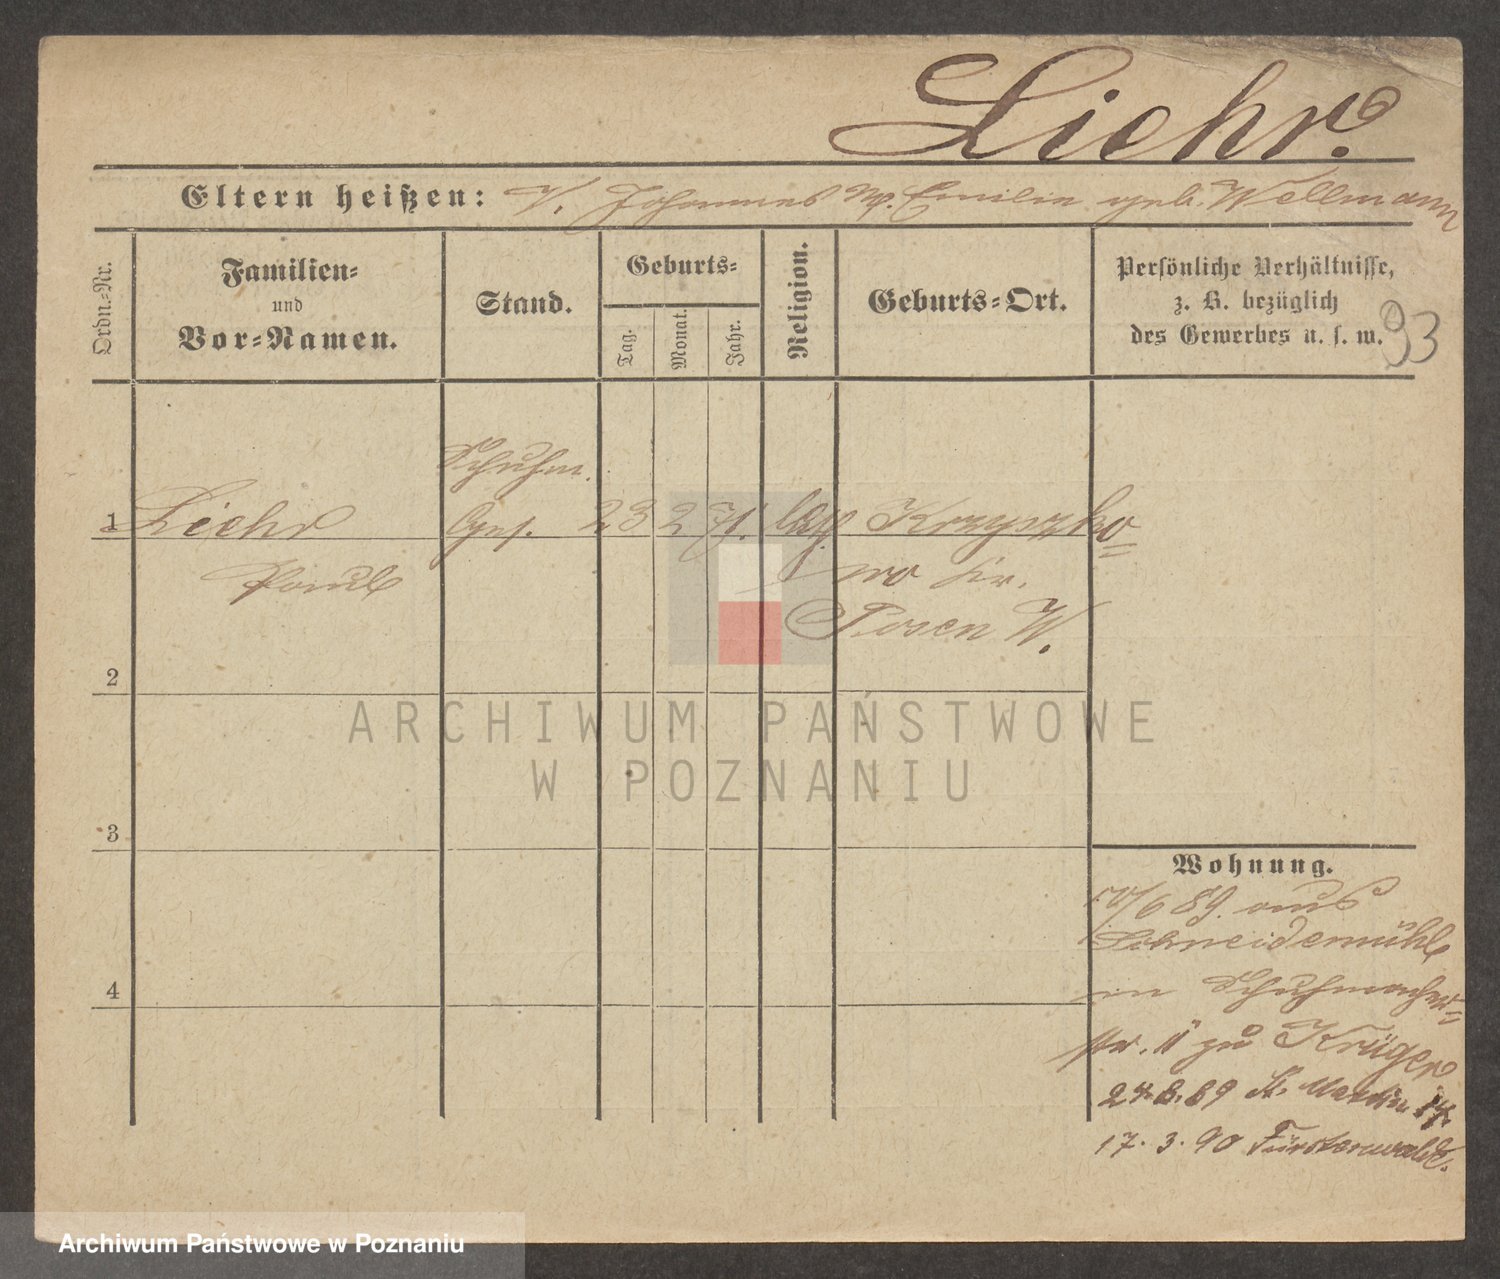 Liehr.
Eltern heißen: V. Johannes M. Emilie geb. Wellmann
Ordn.-Nr.
Familien-
und
Vor-Namen.
Stand.
Geburts-
Tag.
Monat.
Jahr.
Religion.
Geburts-Ort.
Persönliche Verhältnisse,
z. B. bezüglich
des Gewerbes u. s. w.
93
Schuhm.
1 Liehr Ges. 23 2 71. Krzyszko=
Paul wo Kr.
Posen W.
2
ARCHIWUM PAŃSTWOWE
W POZNANIU
3
Wohnung.
/6 89. aus
Schneidemühl
in Schuhmacher=
str. 11 zu Krüger
24.8.89 St. Martin
17.3.90 Fürstenwalde.
4
Archiwum Państwowe w Poznaniu